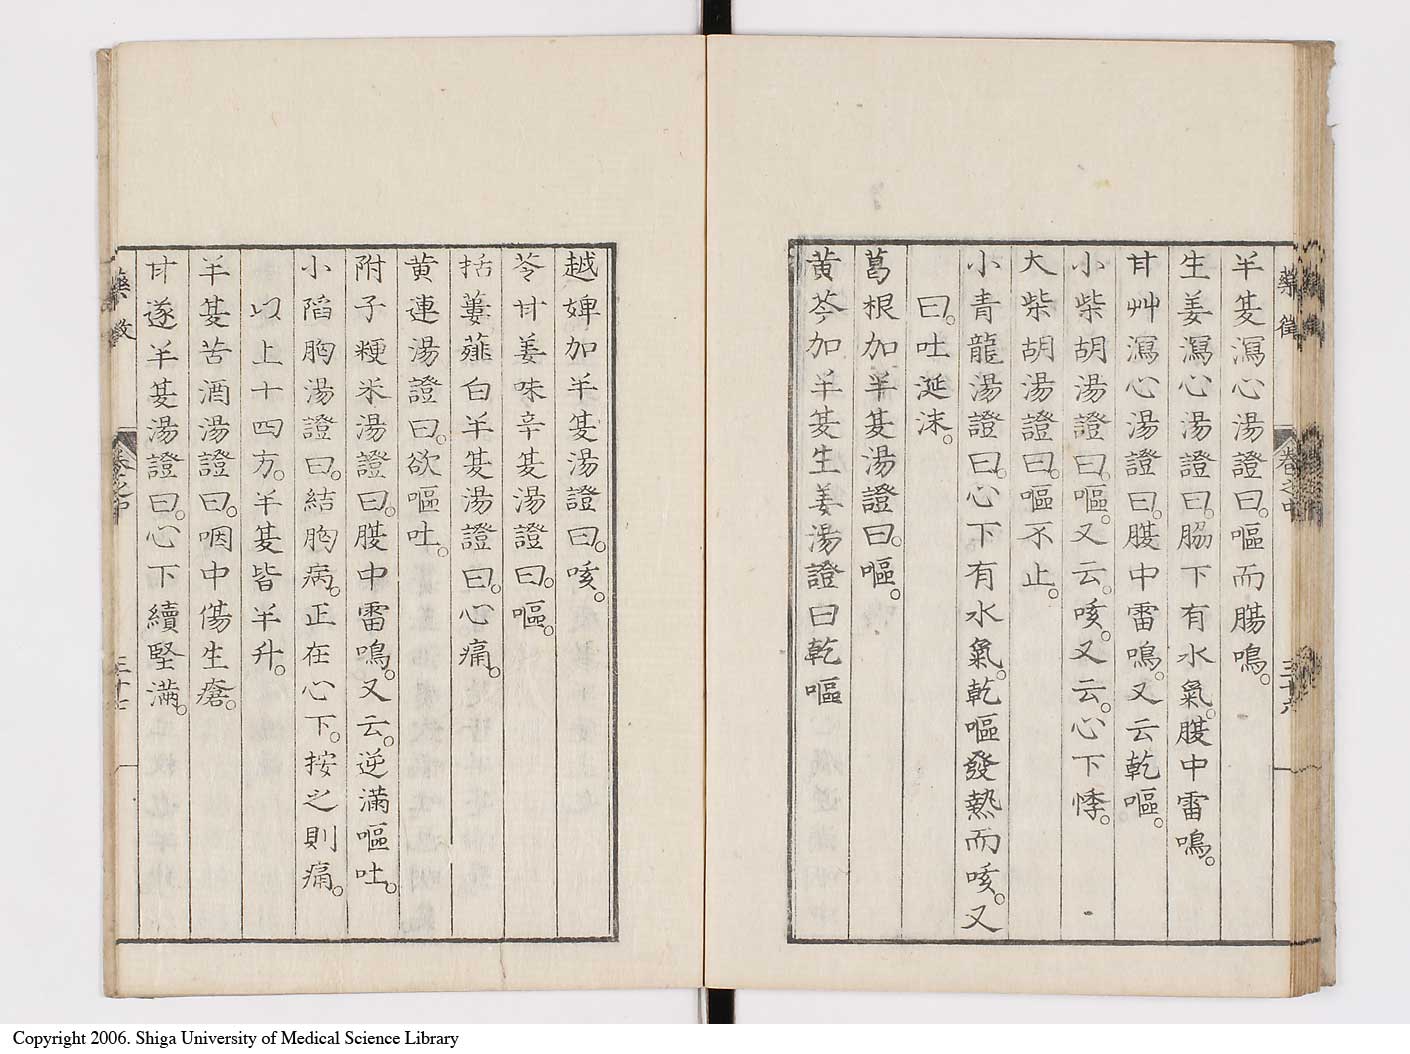 藥徴 卷之中 三十六
半夏瀉心湯證曰。嘔而腸鳴。
生姜瀉心湯證曰。脇下有水氣。腹中雷鳴。
甘艸瀉心湯證曰。腹中雷鳴。又云乾嘔。
小柴胡湯證曰。嘔。又云。咳。又云。心下悸。
大柴胡湯證曰。嘔不止。
小青龍湯證曰。心下有水氣。乾嘔發熱而咳。又
曰。吐涎沫。
葛根加半夏湯證曰。嘔。
黄芩加半夏生姜湯證曰乾嘔
越婢加半夏湯證曰。咳。
苓甘姜味辛夏湯證曰。嘔。
括蔞薤白半夏湯證曰。心痛。
黄連湯證曰。欲嘔吐。
附子粳米湯證曰。腹中雷鳴。又云。逆滿嘔吐。
小陷胸湯證曰。結胸病。正在心下。按之則痛。
以上十四方。半夏皆半升。
半夏苦酒湯證曰。咽中傷生瘡。
甘遂半夏湯證曰。心下續堅滿。
藥徴 卷之中 三十七
Copyright 2006. Shiga University of Medical Science Library